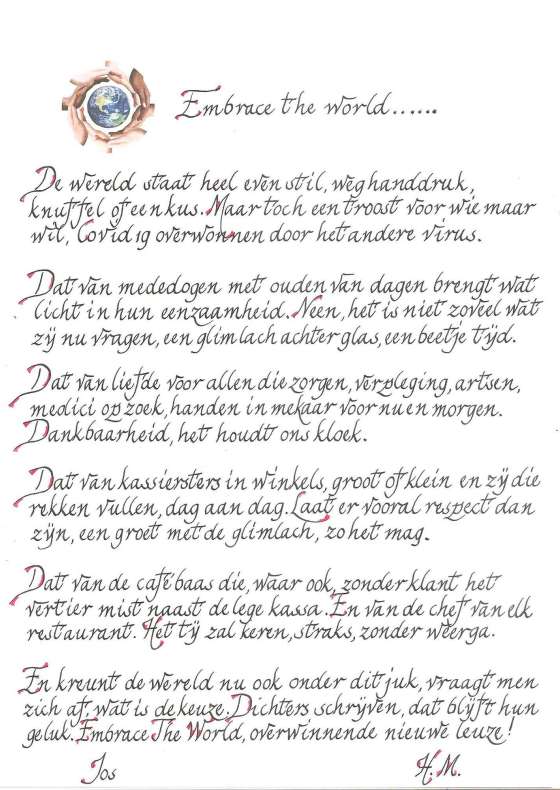 Embrace the world......
De wereld staat heel even stil, weg handdruk,
knuffel of een kus. Maar toch een troost voor wie maar
wil, Covid 19 overwonnen door het andere virus.
Dat van mededogen met ouden van dagen brengt wat
licht in hun eenzaamheid. Neen, het is niet zoveel wat
zij nu vragen, een glimlach achter glas, een beetje tijd.
Dat van liefde voor allen die zorgen, verpleging, artsen,
medici op zoek, handen in mekaar voor nu en morgen.
Dankbaarheid, het houdt ons kloek.
Dat van kassiersters in winkels, groot of klein en zij die
rekken vullen, dag aan dag. Laat er vooral respect dan
zijn, een groet met de glimlach, zo het mag.
Dat van de cafébaas die, waar ook, zonder klant het
vertier mist naast de lege kassa. En van de chef van elk
restaurant. Het tij zal keren, straks, zonder weerga.
En kreunt de wereld nu ook onder dit juk, vraagt men
zich af, wat is de keuze. Dichters schrijven, dat blijft hun
geluk. Embrace The World, overwinnende nieuwe leuze!
Jos H.M.